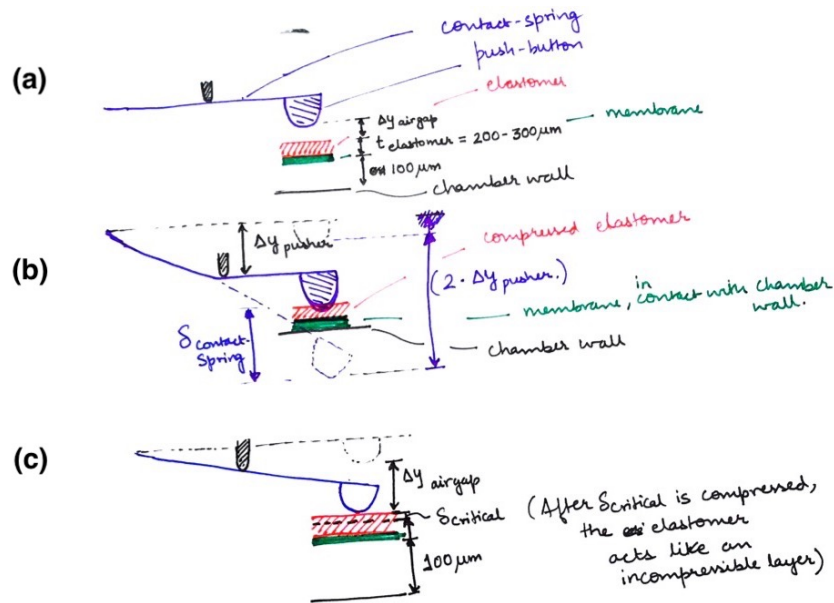 (a)
contact-spring
push-button
elastomer
Δy airgap
membrane
t elastomer = 200-300μm
100μm
chamber wall
(b)
Δy pusher
compressed elastomer
(2·Δy pusher.)
membrane, in contact with chamber
wall.
δ contact-
Spring
chamber wall
(c)
Δy airgap
δcritical
(After δcritical is compressed,
the elastomer
acts like an
incompressible layer)
100μm